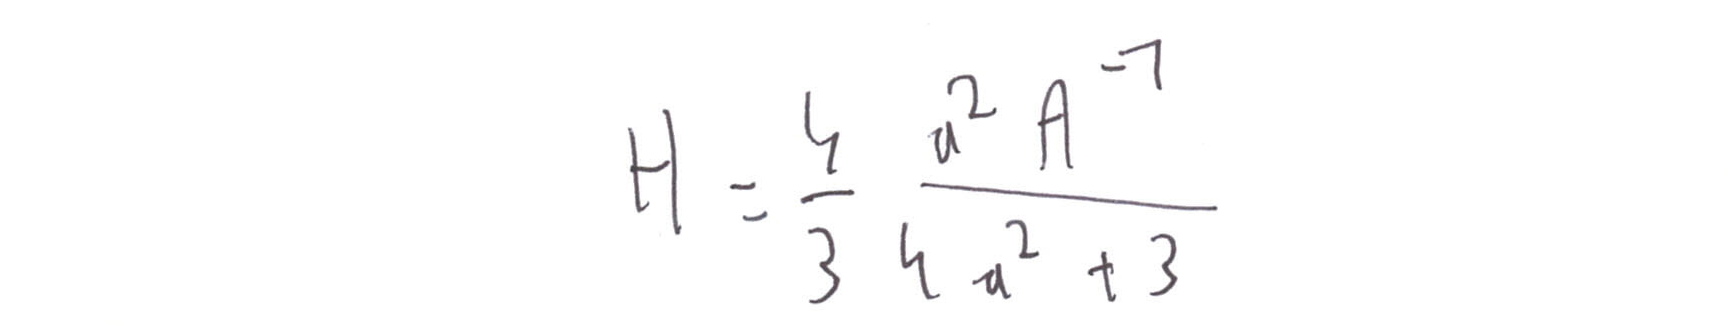 H = \frac{4}{3} \frac{a^2 A^{-7}}{4 a^2 + 3}